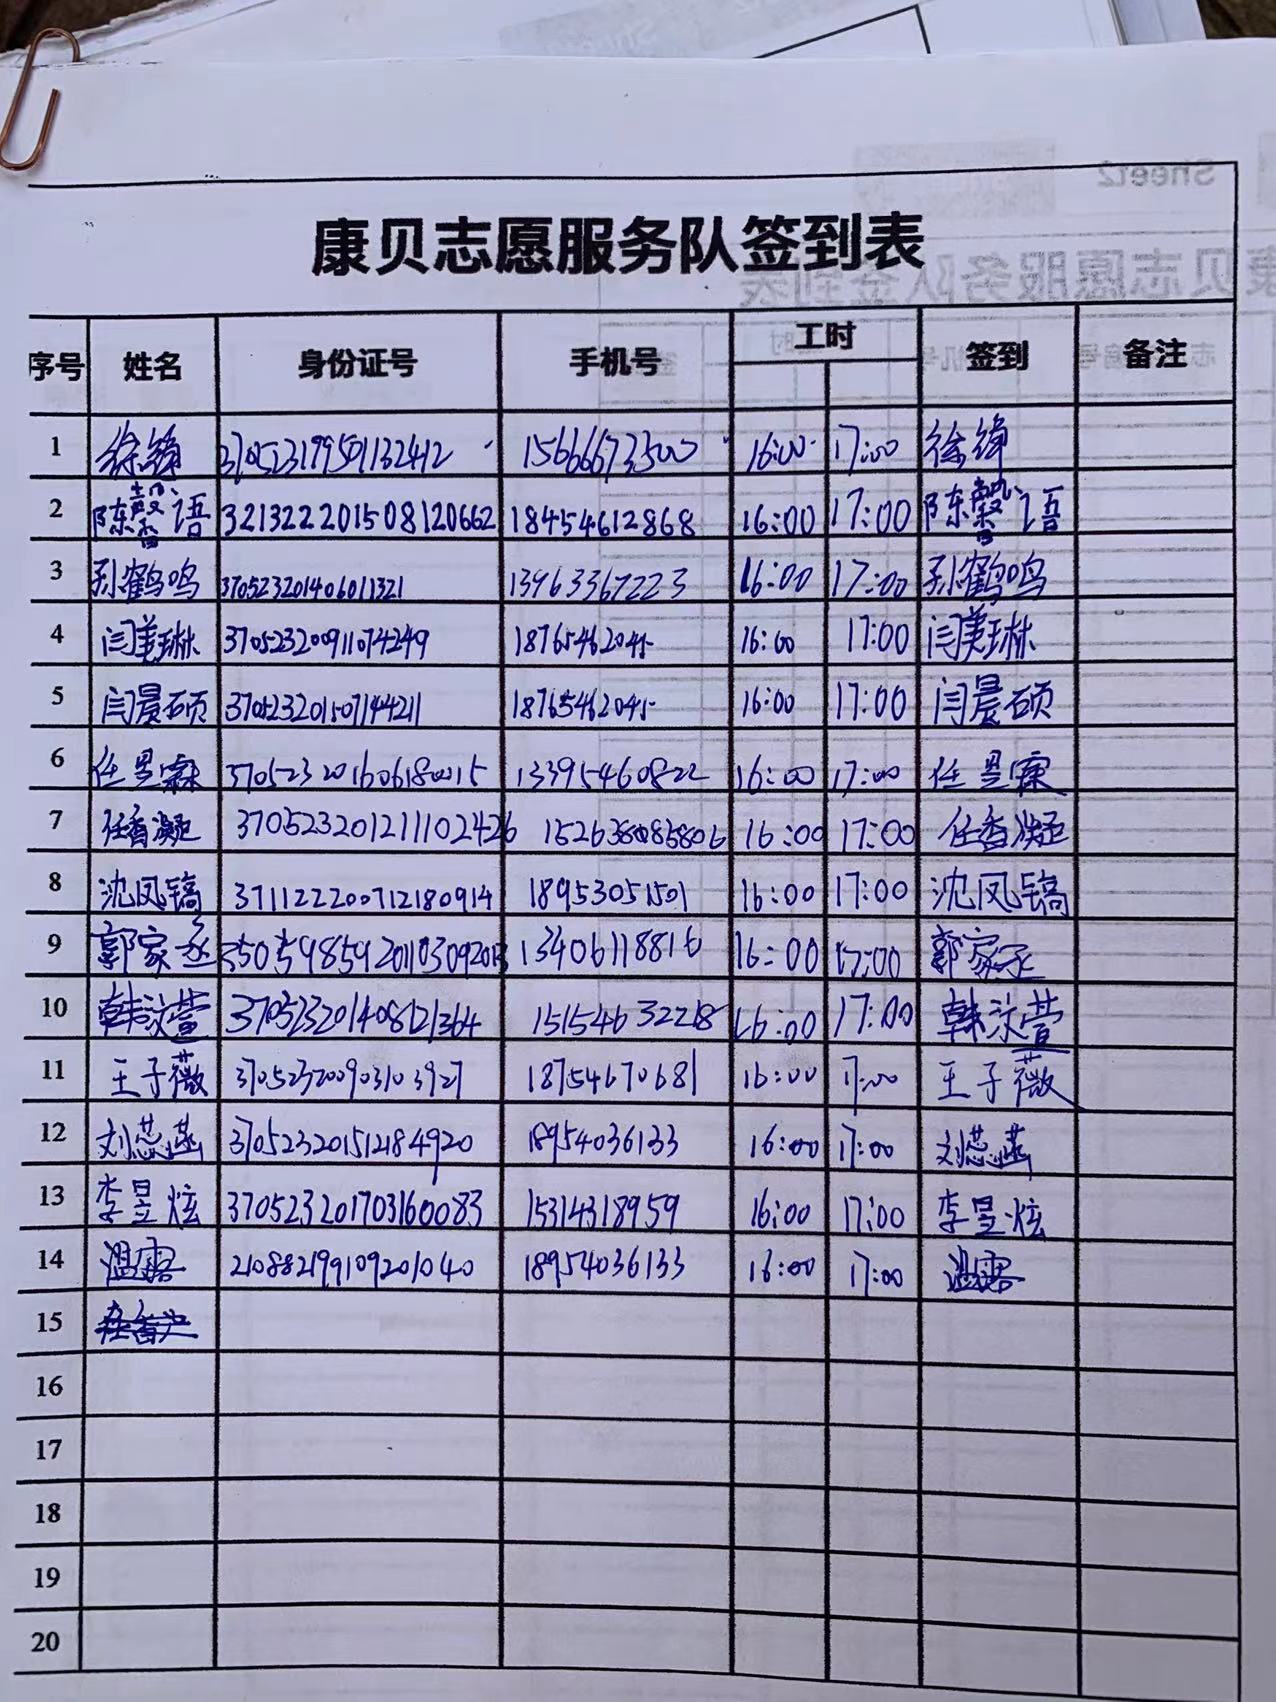 Sheet2
康贝志愿服务队签到表
序号 姓名 身份证号 手机号 工时 签到 备注
1 16:00 17:00
2 陈馨语 321322201508120662 18454612868 16:00 17:00 陈馨语
3 孙鹤鸣 370523201406011321 13963367223 16:00 17:00 孙鹤鸣
4 闫美琳 370523200911074249 16:00 17:00 闫美琳
5 闫晨硕 370523201507144211 16:00 17:00 闫晨硕
6 任昱霖 370523201606180015 13395460822 16:00 17:00 任昱霖
7 任香凝 3705232012111102426 16:00 17:00 任香凝
8 沈凤镐 371122200712180914 18953051501 16:00 17:00 沈凤镐
9 郭家丞 13406118816 16:00 17:00 郭家丞
10 韩汶萱 370523201408121364 15154632218 16:00 17:00 韩汶萱
11 王子薇 370523200903103927 18754670681 16:00 17:00 王子薇
12 刘蕊菡 370523201512184920 18954036133 16:00 17:00 刘蕊菡
13 李昱炫 370523201703160083 15314318959 16:00 17:00 李昱炫
14 温露 210882199109201040 18954036133 16:00 17:00 温露
15
16
17
18
19
20